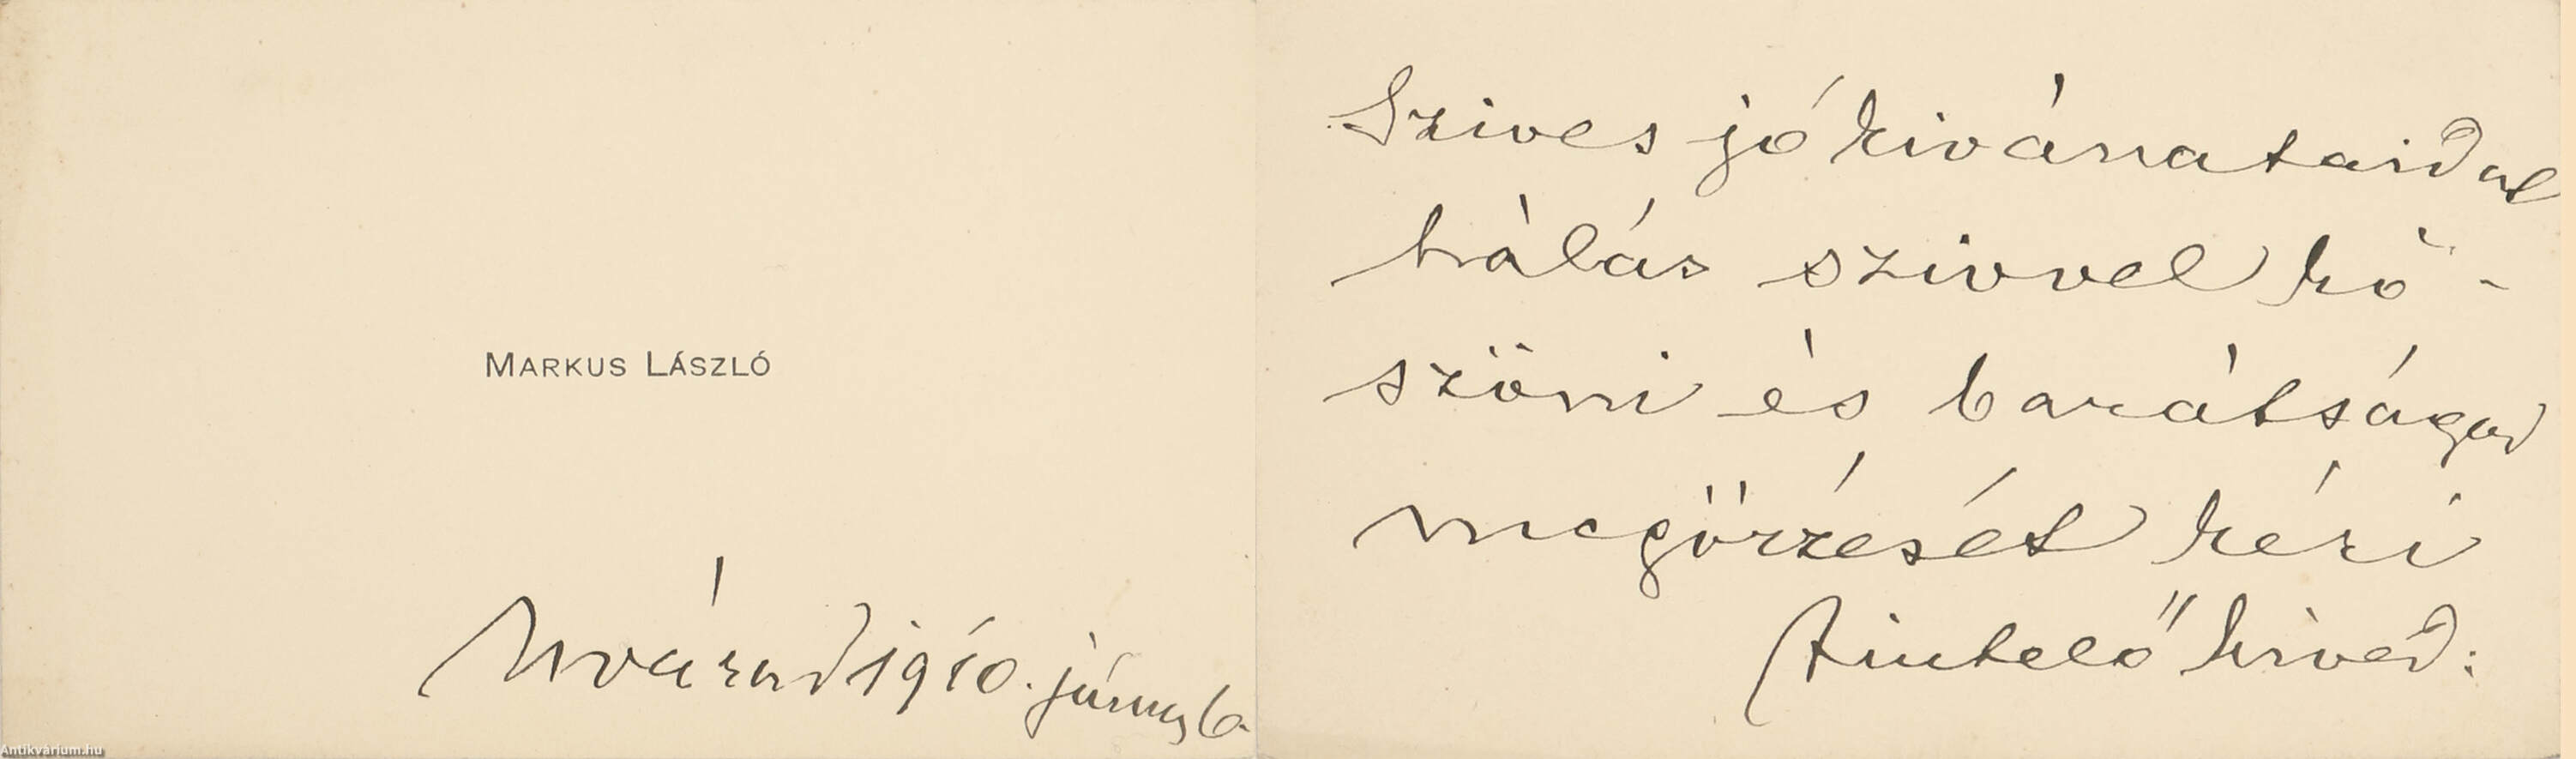 MARKUS LÁSZLÓ
Nvárad 1910. június 6.
Szives jó kivánataidat
hálás szivvel kö-
szöni és barátságod
megőrzését kéri
tisztelő hived:
Antikvárium.hu